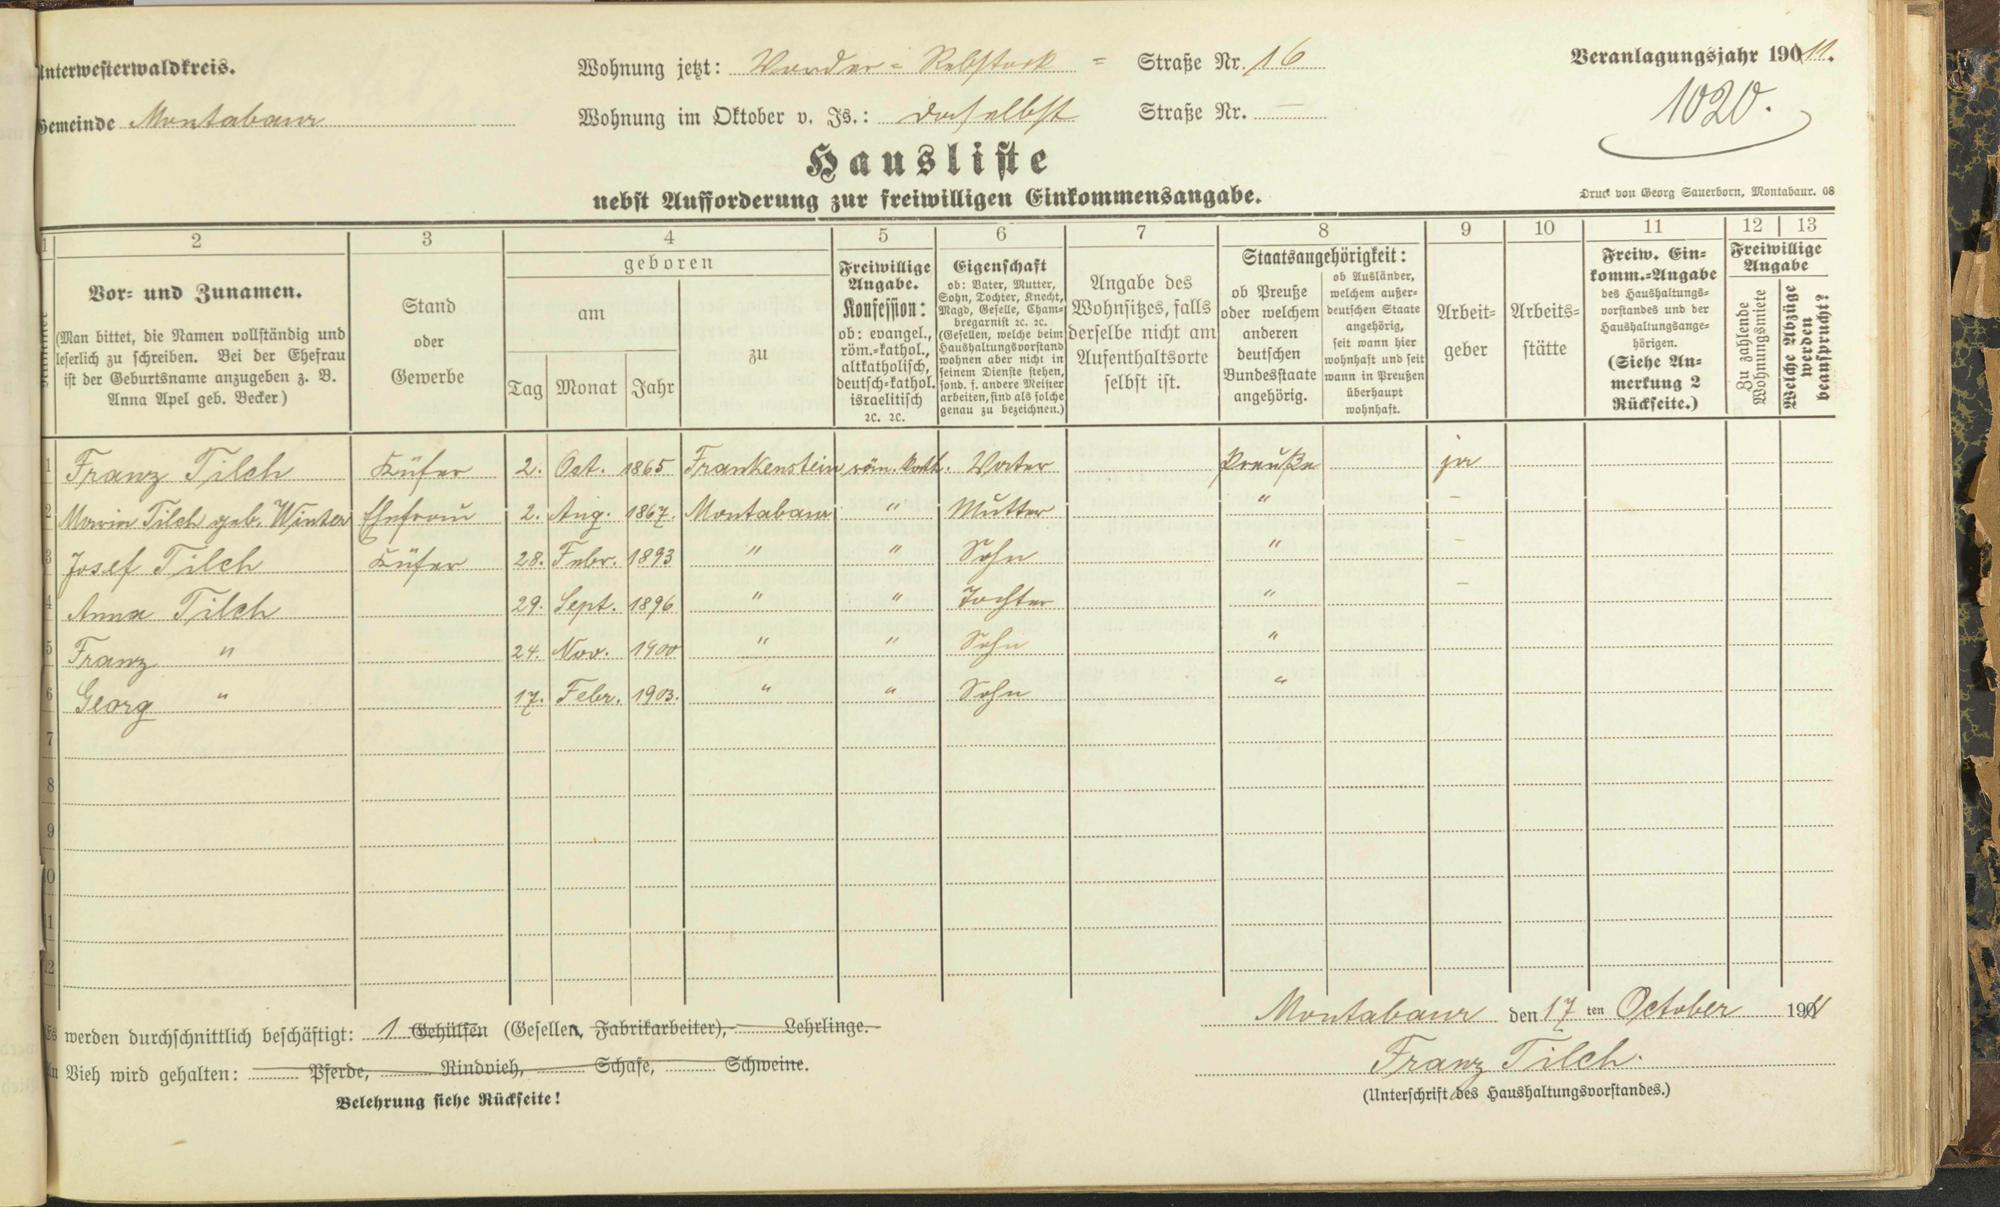 Unterwesterwaldkreis.
Wohnung jetzt: Vorder-Rebstock = Straße Nr. 16
Veranlagungsjahr 19011.
Gemeinde Montabaur
Wohnung im Oktober v. Js.: daselbst Straße Nr. —
1020.
Hausliste
nebst Aufforderung zur freiwilligen Einkommensangabe.
Druck von Georg Sauerborn, Montabaur. 08
1 2 3 4 5 6 7 8 9 10 11 12 13
Nummer
Vor- und Zunamen.
(Man bittet, die Namen vollständig und
leserlich zu schreiben. Bei der Ehefrau
ist der Geburtsname anzugeben z. B.
Anna Apel geb. Becker)
Stand
oder
Gewerbe
geboren
am
Tag Monat Jahr
zu
Freiwillige
Angabe.
Konfession:
ob: evangel.,
röm.-kathol.,
altkatholisch,
deutsch-kathol.
israelitisch
ꝛc. ꝛc.
Eigenschaft
ob: Vater, Mutter,
Sohn, Tochter, Knecht,
Magd, Geselle, Cham-
bregarnist ꝛc. ꝛc.
(Gesellen, welche beim
Haushaltungsvorstand
wohnen aber nicht in
seinem Dienste stehen,
sond. f. andere Meister
arbeiten, sind als solche
genau zu bezeichnen.)
Angabe des
Wohnsitzes, falls
derselbe nicht am
Aufenthaltsorte
selbst ist.
Staatsangehörigkeit:
ob Preuße
oder welchem
anderen
deutschen
Bundesstaate
angehörig.
ob Ausländer,
welchem außer-
deutschen Staate
angehörig,
seit wann hier
wohnhaft und seit
wann in Preußen
überhaupt
wohnhaft.
Arbeit-
geber
Arbeits-
stätte
Freiw. Ein-
komm.-Angabe
des Haushaltungs-
vorstandes und der
Haushaltungsange-
hörigen.
(Siehe An-
merkung 2
Rückseite.)
Freiwillige
Angabe
Zu zahlende
Wohnungsmiete
Welche Abzüge
werden
beansprucht?
1 Franz Tilch Küfer 2. Oct. 1865 Frankenstein röm. kath. Vater Preuße ja
2 Maria Tilch geb. Winter Ehefrau 2. Aug. 1867. Montabaur " Mutter " –
3 Josef Tilch Küfer 28. Febr. 1893 " " Sohn " –
4 Anna Tilch 29. Sept. 1896 " " Tochter " –
5 Franz " 24. Nov. 1900 " " Sohn "
6 Georg " 17. Febr. 1903. " " Sohn "
7
8
9
10
11
12
Montabaur den 17 ten October 1901
Es werden durchschnittlich beschäftigt: 1 Gehülfen (Gesellen, Fabrikarbeiter), Lehrlinge.
Franz Tilch.
An Vieh wird gehalten: Pferde, Rindvieh, Schafe, Schweine.
(Unterschrift des Haushaltungsvorstandes.)
Belehrung siehe Rückseite!